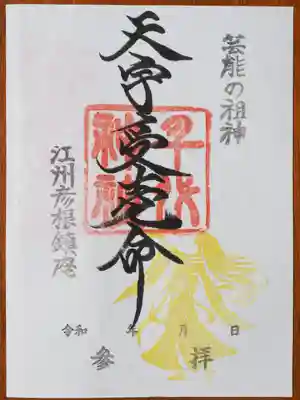 芸能の祖神
天宇受売命
千代
神社
江州彦根鎮座
令和 年 月 日
参拝